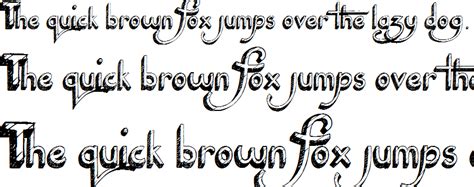 The quick brown fox jumps over the lazy dog.
The quick brown fox jumps over the
The quick brown fox jumps